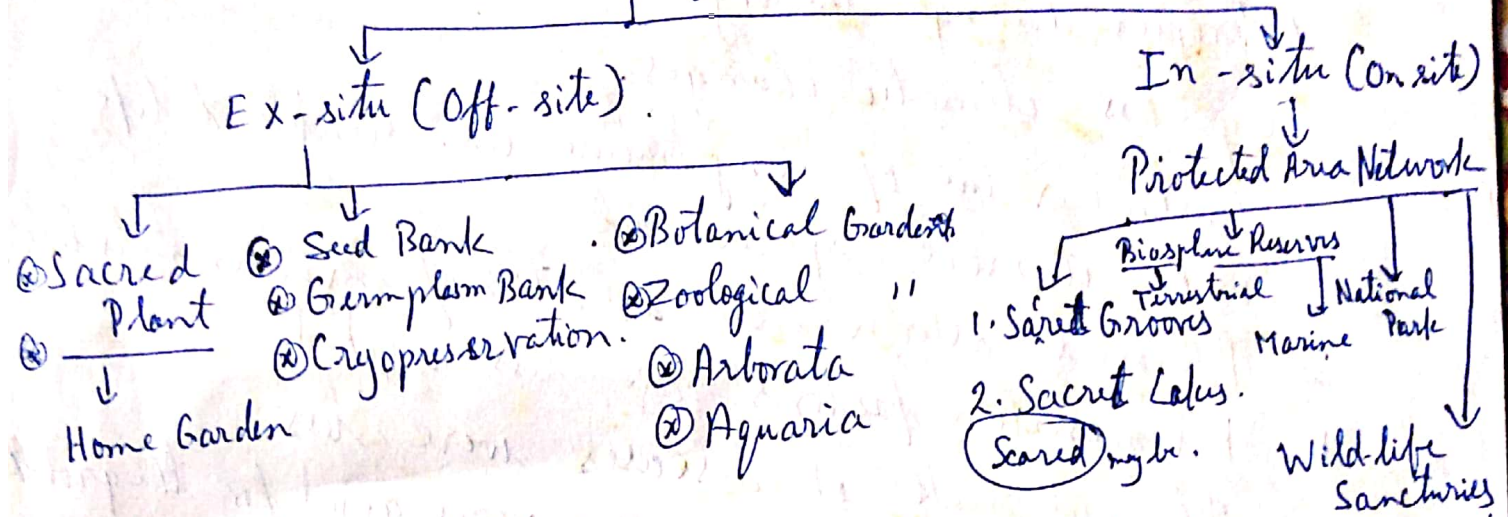 Ex-situ (Off-site).
In-situ (On site)
Protected Area Network
Sacred Plant
Home Garden
Seed Bank
Germplasm Bank
Cryopreservation.
Botanical Gardens
Zoological "
Arborata
Aquaria
Biosphere Reserves
Terrestrial
Marine
National
Park
1. Sacret Grooves
2. Sacret Lakes.
Scared may be.
Wild-life
Sancturies